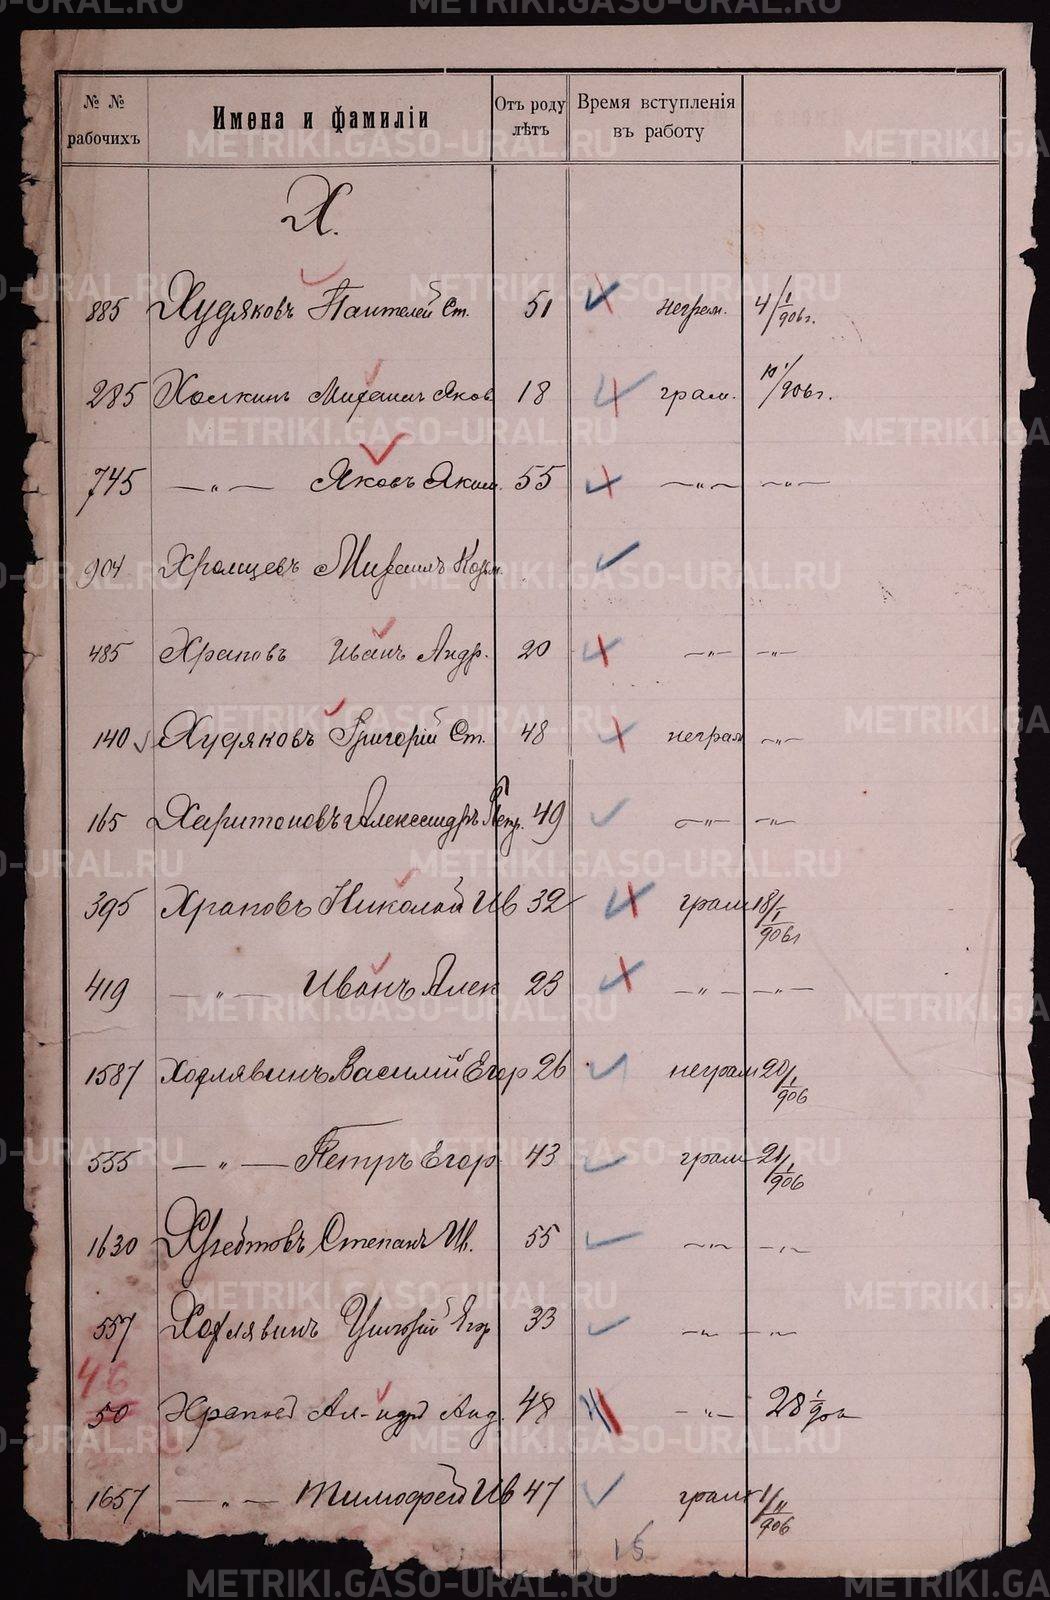 № № рабочихъ Имена и фамиліи Отъ роду лѣтъ Время вступленія въ работу
Х.
885 Худяковъ Пантелей Ст. 51 неграм. 4/1/906г.
285 Холкинъ Михаилъ Яков 18 грам. 10/1/906г.
745 —„— Яковъ Яким. 55 —„— —„—
904 Хромцевъ Михаилъ Козьм.
485 Храповъ Иванъ Андр. 20 —„— —„—
140 Худяковъ Григорій Ст. 48 неграм —„—
165 Харитоновъ Александръ Петр. 49 —„— —„—
395 Храповъ Николай Ив 32 грам 18/1/906г
419 —„— Иванъ Алек 23 —„— —„—
1587 Василій Егор 26 неграм 20/1/906
555 —„— Петръ Егор 43 грам 21/1/906
1630 Степанъ Ив. 55 —„— —„—
557 Егор 33 —„— —„—
46
50 Храповъ Ал-ндръ Анд. 48 —„— 28 1/906
1657 —„— Тимофей Ив 47 грам 1/II/906
15
METRIKI.GASO-URAL.RU